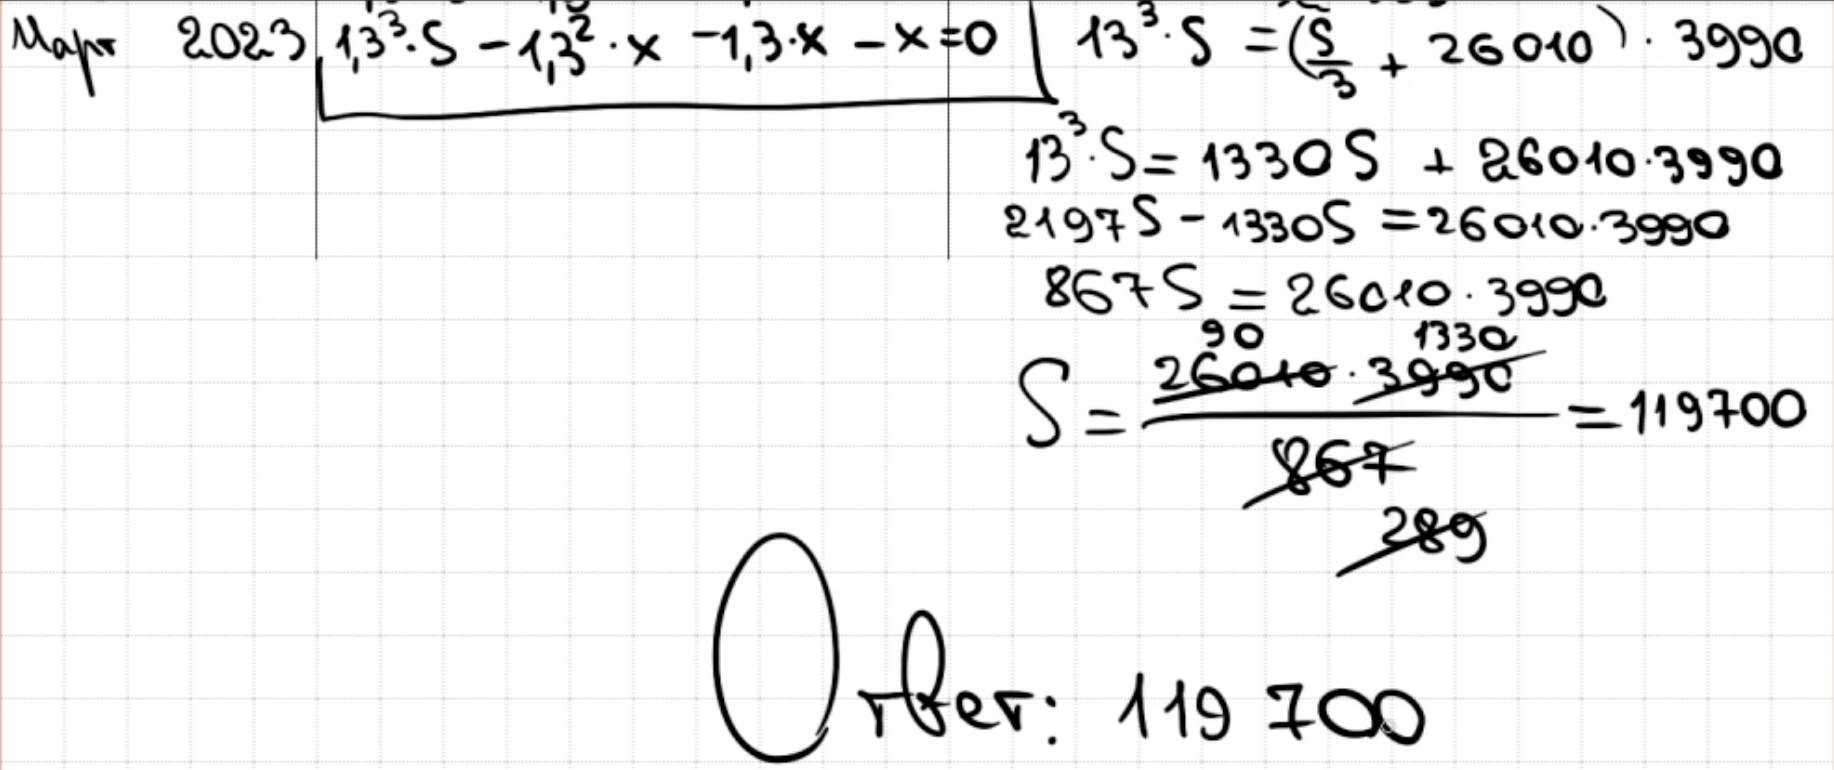 Март 2023 1,3³·S - 1,3²·x - 1,3·x - x = 0
13³·S = (S/3 + 26010)·3990
13³·S = 1330S + 26010·3990
2197S - 1330S = 26010·3990
867S = 26010·3990
90 1330
S = 26010·3990 / 867 = 119700
289
Ответ: 119 700